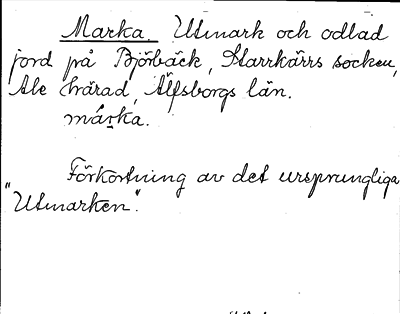 Marka. Utmark och odlad
jord på Björbäck, Starrkärrs socken,
Ale härad, Älfsborgs län.
márka.
Förkortning av det ursprungliga
"Utmarken".